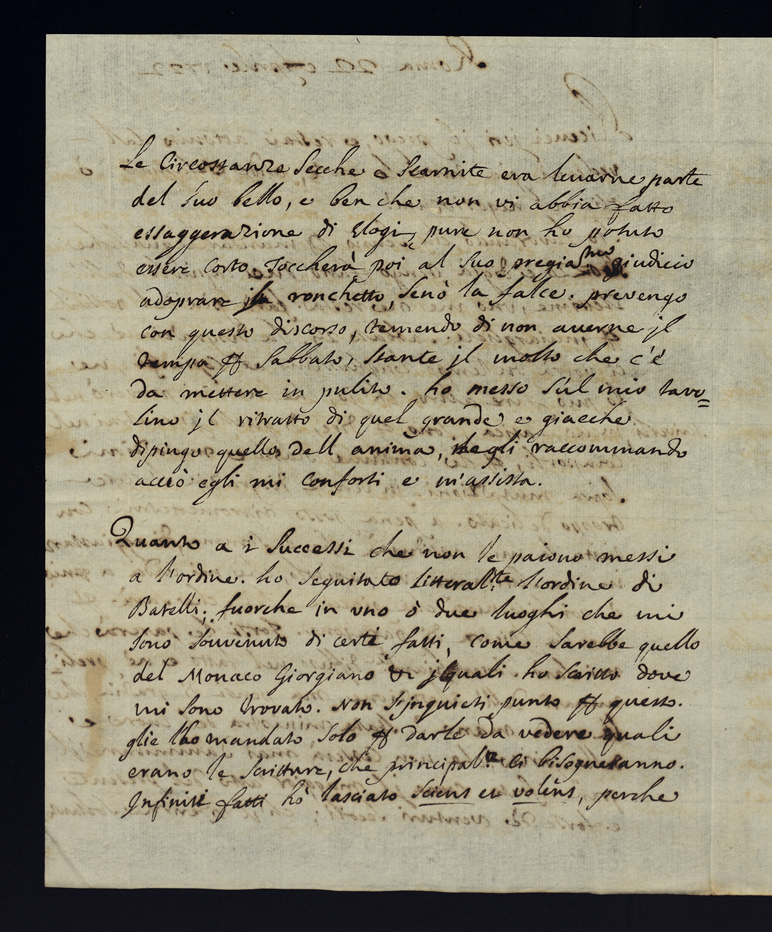 Le Circostanze Secche e Scarnite era levarne parte
del Suo bello, e ben che non vi abbia fatto
essaggerazione di Elogi, pure non ho potuto
essere corto. Toccherà poi al Suo pregia.mo giudicio
adoprare il ronchetto, senò la falce. prevengo
con questo discorso, temendo di non averne jl
tempo Sabbato, stante jl molto che c'è
da mettere in pulito. ho messo sul mio tavo=
lino jl ritratto di quel grande e giacche
dipingo quello dell anima, raccommando
acciò egli mi conforti e m'assista.
Quanto a i Successi che non le paiono messi
a l'ordine. ho seguitato litteral.te l'ordine di
Batelli; fuorche in uno ò due luoghi che mi
sono souvenuto di certi fatti, come sarebbe quello
del Monaco Giorgiano jquali ho scritto dove
mi sono trovato. Non s'jnquieti punto questo.
glie l'ho mandato solo darle da vedere quali
erano le scritture, che principal.te ci bisogneranno.
Infiniti fatti hò lasciato sciens et volens, perche